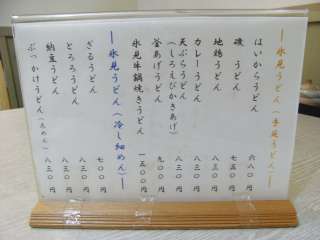 ―氷見うどん(手延うどん)―
はいからうどん 六八〇円
磯うどん 七五〇円
地鶏うどん 八三〇円
カレーうどん 八三〇円
天ぷらうどん 八三〇円
(しろえびかきあげ)
釜あげうどん 九〇〇円
氷見牛鍋焼きうどん 一五〇〇円
―氷見うどん(冷し細めん)―
ざるうどん 七〇〇円
とろろうどん 八三〇円
納豆うどん 八三〇円
ぶっかけうどん(太めん) 八三〇円